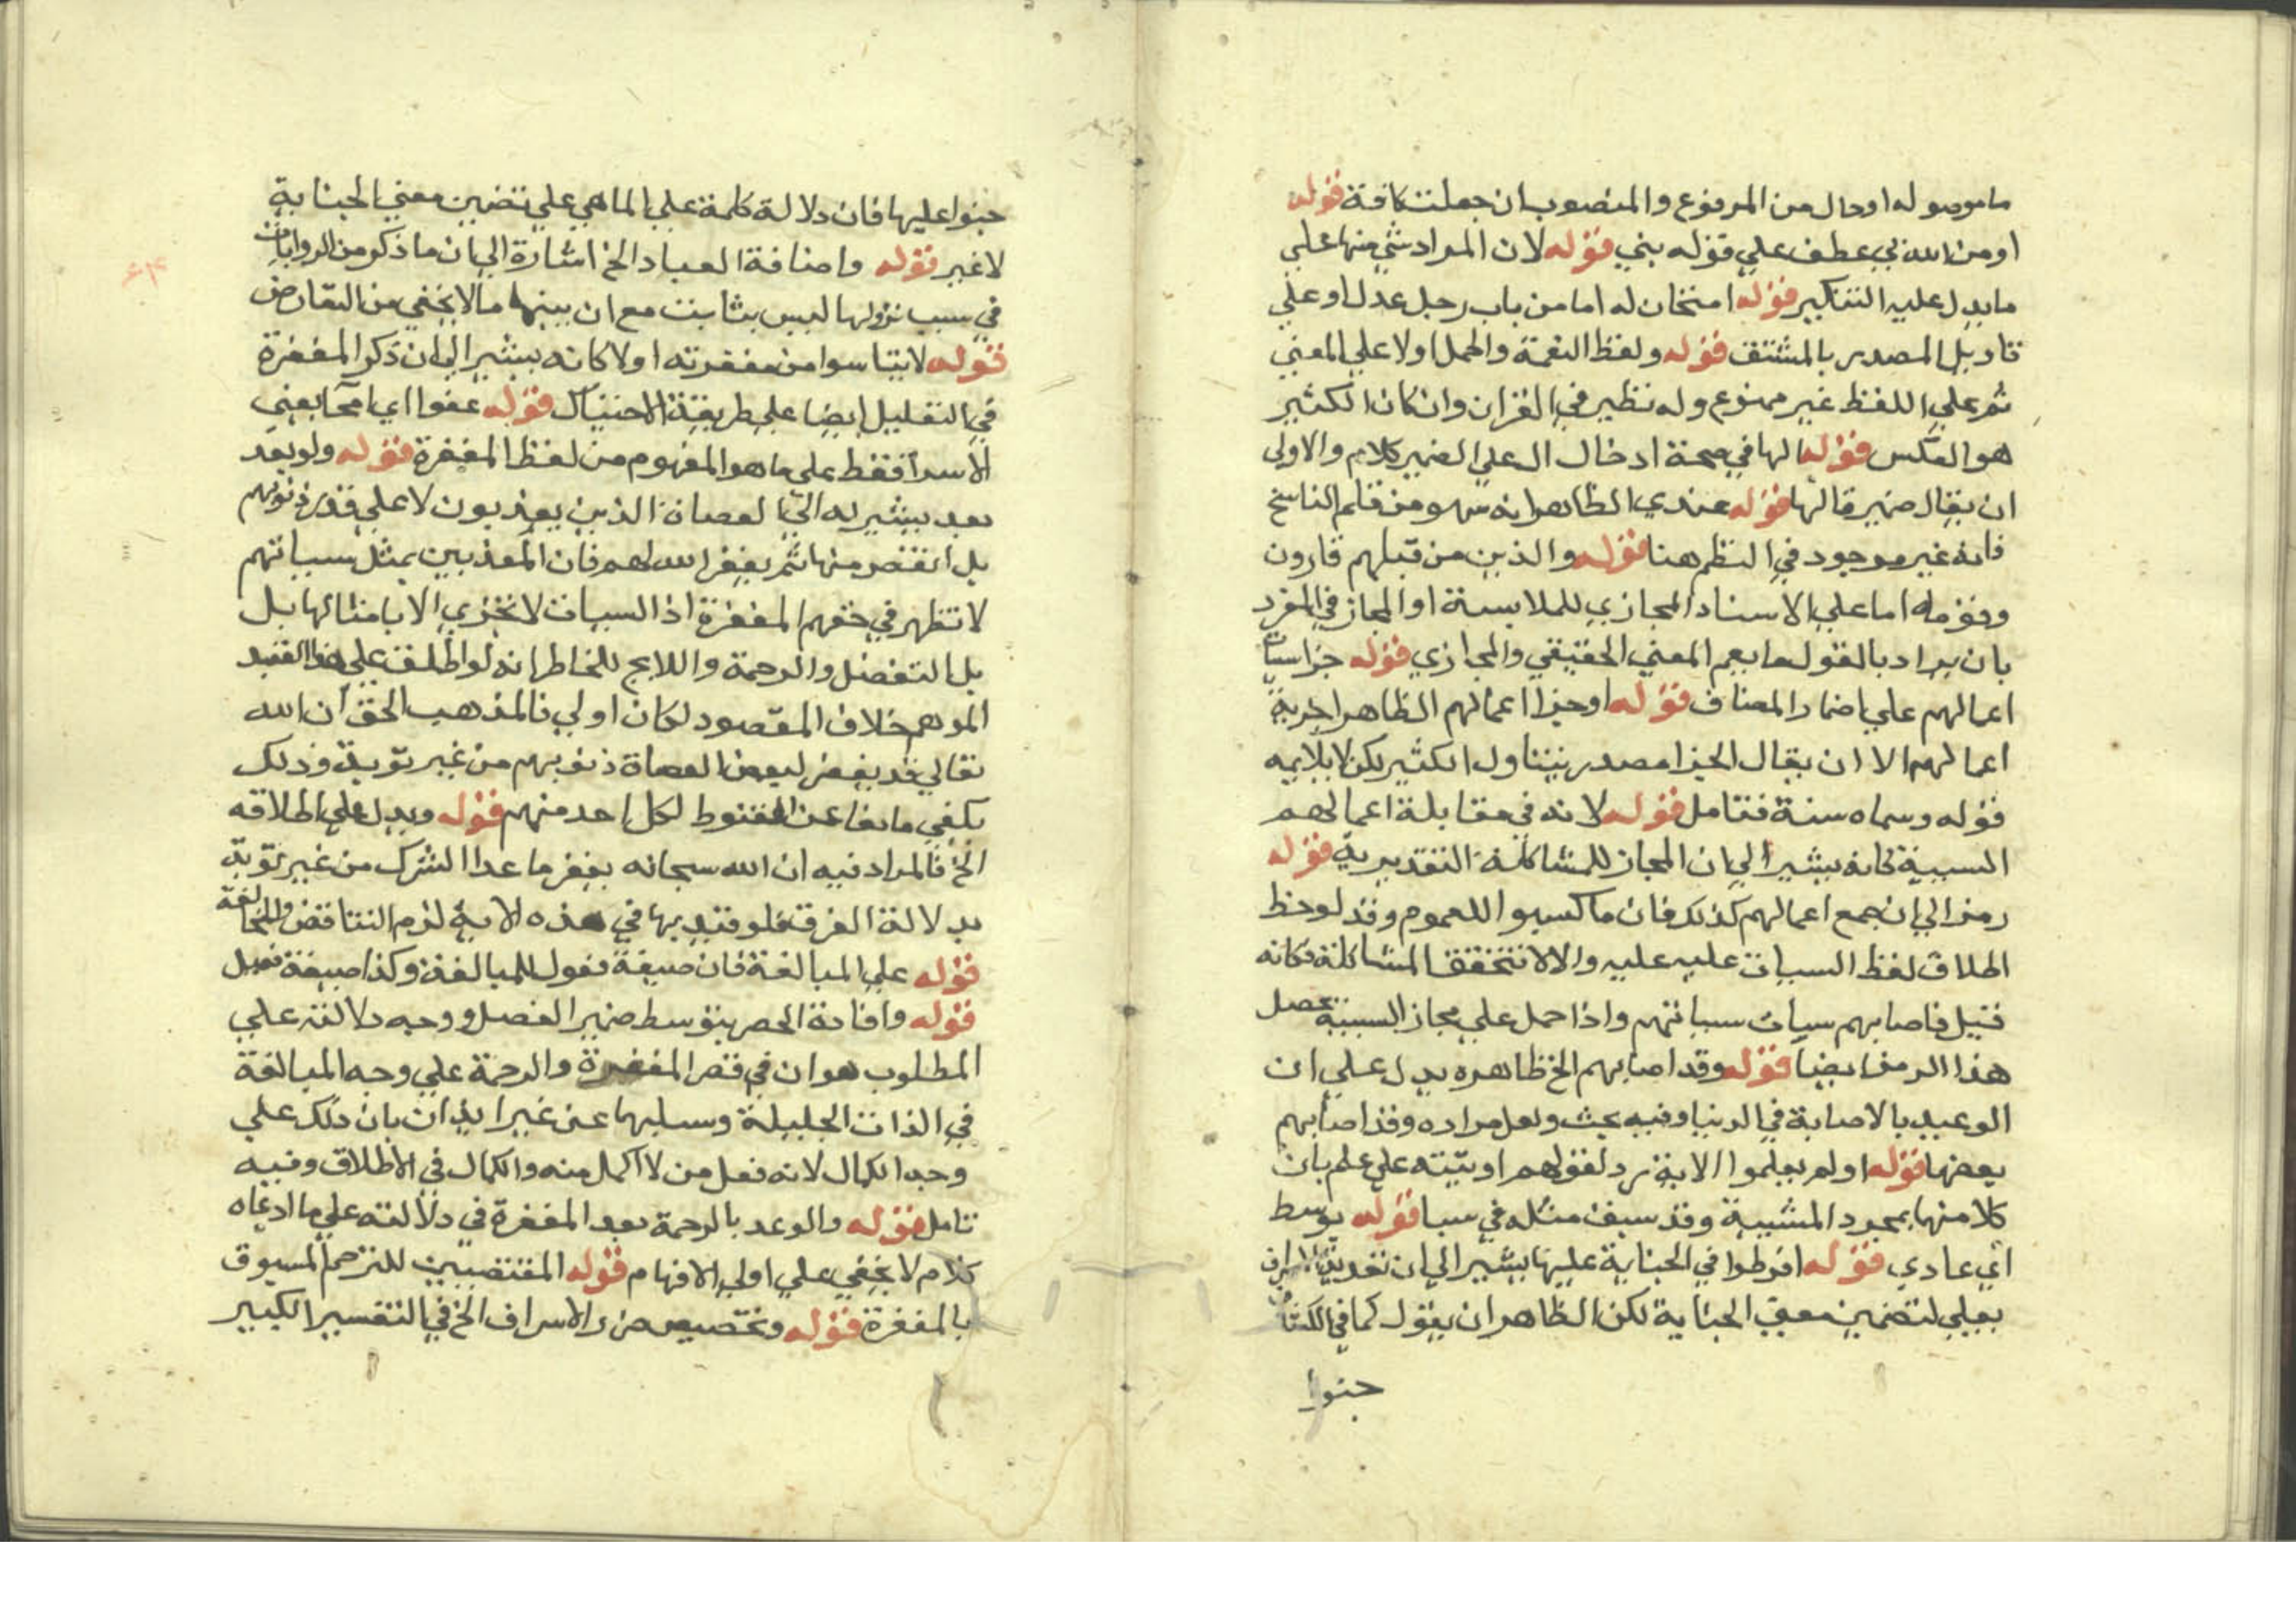 ما موصوله او حال من المرفوع والمنصوب ان جعلت كافة قوله
او من الله بي عطف علي قوله بني قوله لان المراد شئ منها علي
ما يدل عليه التنكير قوله امتحان له اما من باب رجل عدل او علي
تاويل المصدر بالمشتق قوله ولفظ النعمة والحمل اولا علي المعني
ثم علي اللفظ غير ممنوع وله نظير في القران وان كان الكثير
هو العكس قوله الها في صحة ادخال ال علي الضمير كلام والاولي
ان يقال ضمير قالها قوله عندي الظاهر انه سهو من قلم الناسخ
فانه غير موجود في النظم هنا قوله والذين من قبلهم قارون
وقومه اما علي الاسناد المجازي للملابسة او المجاز في المفرد
بان يراد بالقول ما يعم المعني الحقيقي والمجازي قوله جزا سيات
اعمالهم علي اضمار المضاف قوله او جزا اعمالهم الظاهر اجزية
اعمالهم الا ان يقال الجزا مصدر يتناول الكثير لكن لا يلايمه
قوله وسماه سنة فتامل قوله لانه في مقابلة اعمالهم
السيية كانه يشير الي ان المجاز للمشاكلة التقديرية قوله
رمزا الي ان جمع اعمالهم كذلك فان ما كسبوا للعموم وقد لوحظ
اطلاق لفظ السيات عليه عليه والا لا تتحقق المشاكلة فكانه
قيل فاصابهم سيات سياتهم واذا حمل علي مجاز السببية يحصل
هذا الرمز ايضا قوله وقد اصابهم الخ ظاهره يدل علي ان
الوعيد بالاصابة في الدنيا وفيه بحث ولعل مراده وقد اصابهم
بعضها قوله اولم يعلموا الاية رد لقولهم اوتيته علي علم بان
كلا منها بمجرد المشيية وقد سبق مثله في سبا قوله بوسط
اي عادي قوله افرطوا في الجناية عليها يشير الي ان تعدية الاسراف
بعلي لتضمين معني الجناية لكن الظاهر ان يقول كما في الكشاف
جنوا
جنوا عليها فان دلالة كلمة علي انما هي علي تضمين معني الجناية
لا غير قوله واضافة العباد الخ اشارة الي ان ما ذكر من الروايات
في سبب نزولها ليس بثابت مع ان بينهما ما لا يخفي من التعارض
قوله لا يتاسوا من مغفرته اولا كانه يشير الي ان ذكر المغفرة
في التعليل ايضا علي طريقة الاحتباك قوله عفوا اي امحا يعني
الاسرا فقط علي ما هو المفهوم من لفظ المغفرة قوله ولو بعد
بعد يشير به الي العصاة الذين يعذبون لا علي قدر ذنوبهم
بل انقص منها ثم يغفر الله لهم فان المعذبين بمثل سياتهم
لا تظهر في حقهم المغفرة اذا السيات لا تجزي الا بامثالها بل
بل التفضل والرحمة واللايح للخاطر انه لو اطلق علي هذا القيد
الموهم خلاف المقصود لكان اولي فالمذهب الحق ان الله
تعالي قد يغفر لبعض العصاة ذنوبهم من غير توبة وذلك
يكفي مانعا عن القنوط لكل احد منهم قوله ويدل علي اطلاقه
الخ فالمراد فيه ان الله سبحانه يغفر ما عدا الشرك من غير توبة
بدلالة الفرق فلو قيد بها في هذه الاية لزم التناقض والمخالفة
قوله علي المبالغة فان صيغة فعول للمبالغة وكذا صيغة فعيل
قوله وافادة الحصر بتوسط ضمير الفصل ووجه دلالته علي
المطلوب هو ان في قصر المغفرة والرحمة علي وجه المبالغة
في الذات الجليلة وسلبها عن غير ايذان بان ذلك علي
وجه الكمال لانه فعل من لا اكمل منه والكمال في الاطلاق وفيه
تامل قوله والوعد بالرحمة بعد المغفرة في دلالته علي ما ادعاه
كلام لا يخفي علي اولي الافهام قوله المقتضيين للترحم المسبوق
بالمغفرة قوله وتخصيص ضرر الاسراف الخ في التفسير الكبير